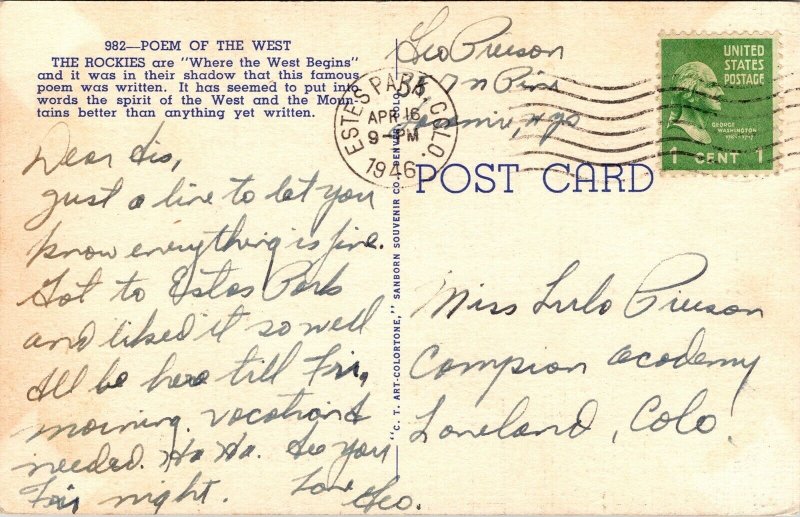 982—POEM OF THE WEST
THE ROCKIES are "Where the West Begins"
and it was in their shadow that this famous
poem was written. It has seemed to put into
words the spirit of the West and the Moun-
tains better than anything yet written.
Dear Sis,
Just a line to let you
know everything is fine.
Got to Estes Park
and liked it so well
I'll be here till Fri,
morning. vacation
needed. Ha Ha. See you
Fri night. Love Geo.
"C. T. ART-COLORTONE," SANBORN SOUVENIR CO., DENVER, COLO.
Geo Pierson
557 N Pine
Laramie, Wyo
ESTES PARK, COLO.
APR 16
9-PM
1946
UNITED
STATES
POSTAGE
GEORGE
WASHINGTON
1 CENT 1
POST CARD
Miss Lulo Pierson
Campion Academy
Loveland, Colo.